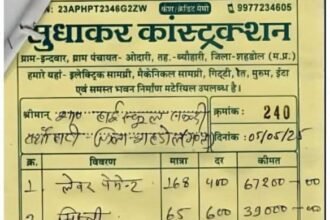 IN: 23APHPT2346G2ZW कैश/क्रेडिट मेमो 9977234605
सुधाकर कांस्ट्रक्शन
ग्राम-इन्दवार, ग्राम पंचायत- ओदारी, तह.-ब्यौहारी, जिला-शहडोल (म.प्र.)
हमारे यहाँ- इलेक्ट्रिक सामग्री, मैकेनिकल सामग्री, गिट्टी, रेत, मुरुम, ईंटा
एवं समस्त भवन निर्माण मटेरियल उपलब्ध है।
श्रीमान् हाई स्कूल क्रमांक: 240
दिनांक: 05/05/25
क्र. विवरण मात्रा दर कीमत
1 लेबर पेमेन्ट 168 400 67200 =00
2 मिस्त्री 65 600 39000 =00